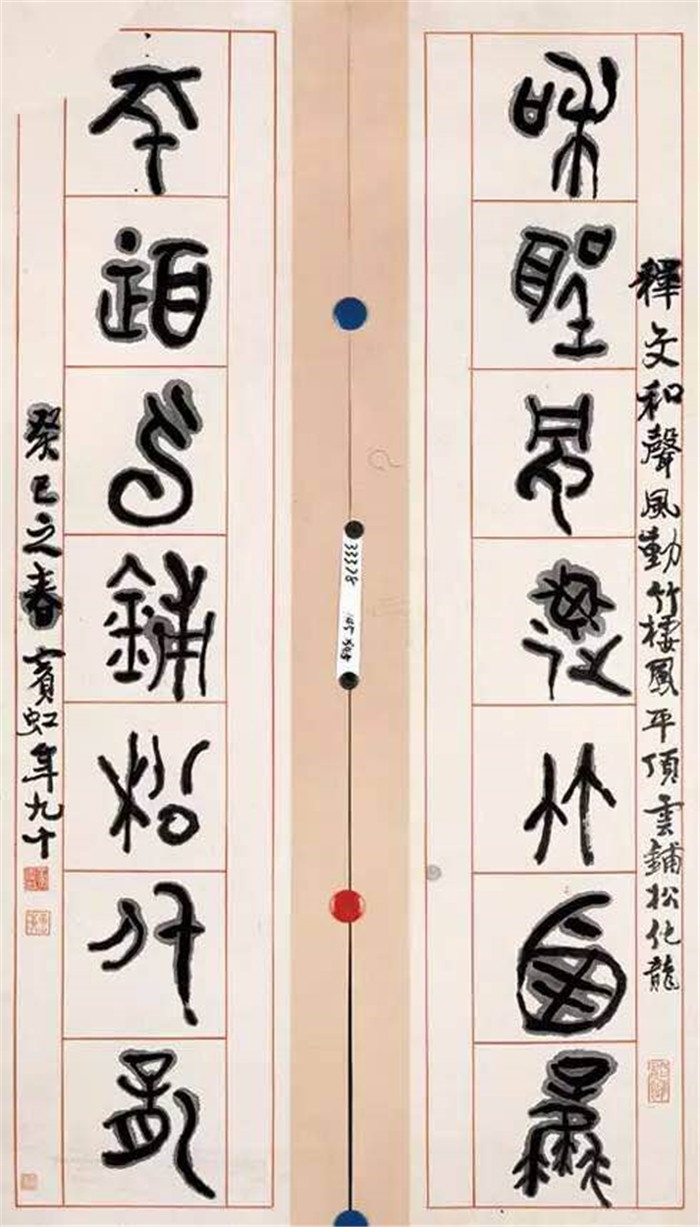 釋文和聲風動竹棲鳳平頂雲鋪松化龍
和聲風動竹棲鳳
平頂雲鋪松化龍
癸巳之春賓虹年九十
33378